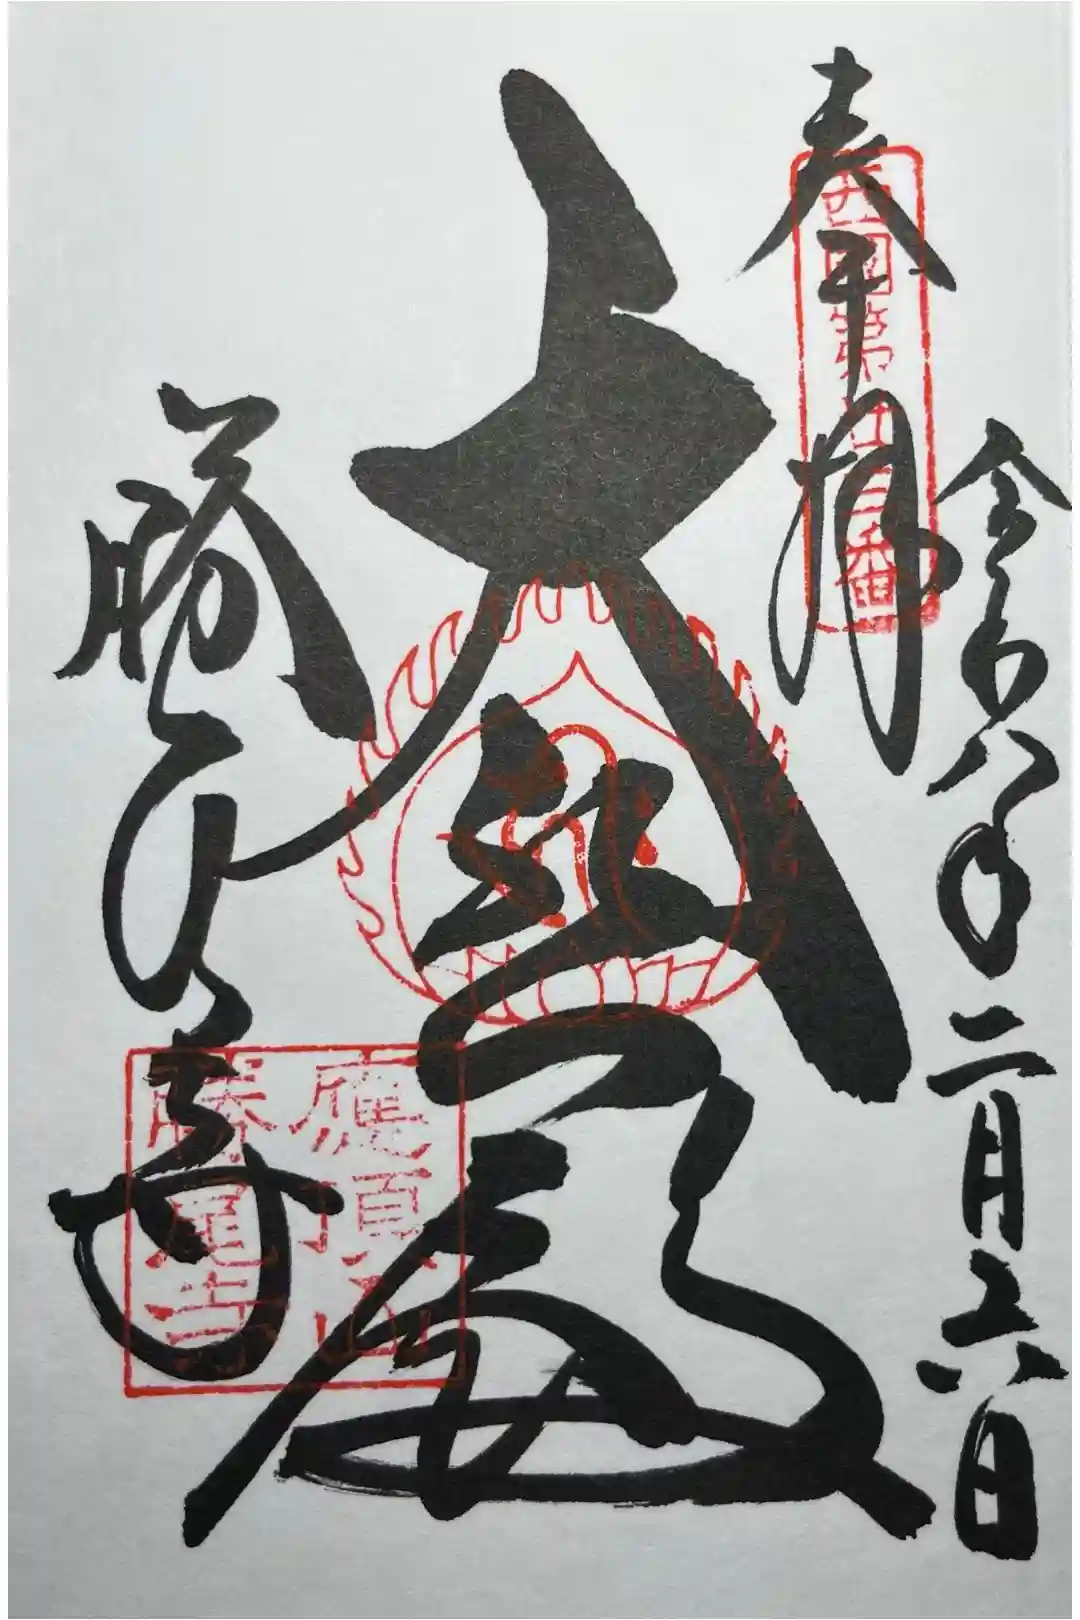 令和八年二月六日
奉拝
西國第廿三番
大悲殿
勝尾寺
應頂山
勝尾寺